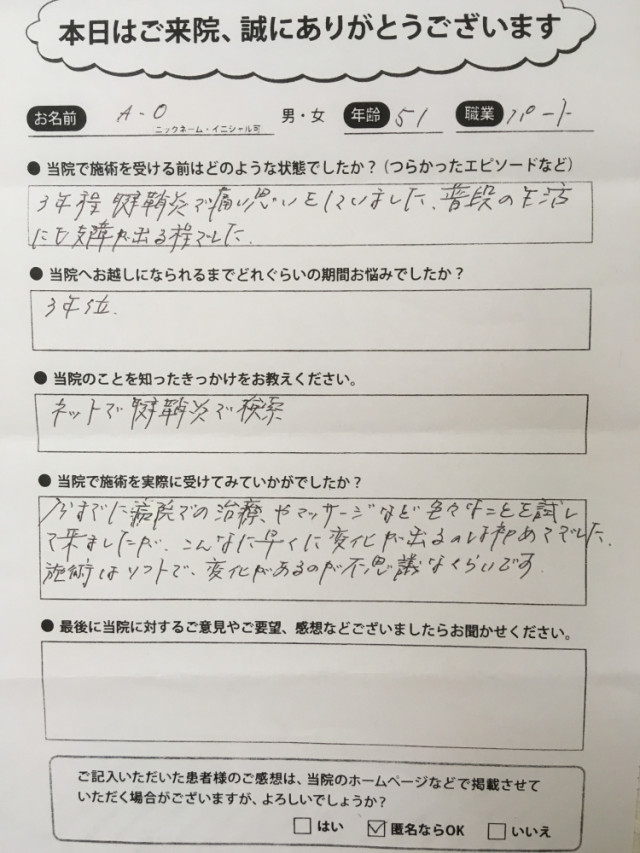 本日はご来院、誠にありがとうございます
お名前 A-O ニックネーム・イニシャル可 男・女 年齢 51 職業 パート
● 当院で施術を受ける前はどのような状態でしたか？（つらかったエピソードなど）
3年程 腱鞘炎で痛い思いをしていました、普段の生活
にも支障が出る程でした。
● 当院へお越しになられるまでどれぐらいの期間お悩みでしたか？
3年位.
● 当院のことを知ったきっかけをお教えください。
ネットで腱鞘炎で検索
● 当院で施術を実際に受けてみていかがでしたか？
今までに病院での治療、やマッサージなど色々なことを試し
て来ましたが、こんなに早くに変化が出るのは初めてでした、
施術はソフトで、変化があるのが不思議なくらいです.
● 最後に当院に対するご意見やご要望、感想などございましたらお聞かせください。
ご記入いただいた患者様のご感想は、当院のホームページなどで掲載させて
いただく場合がございますが、よろしいでしょうか？
□ はい ☑ 匿名ならOK □ いいえ